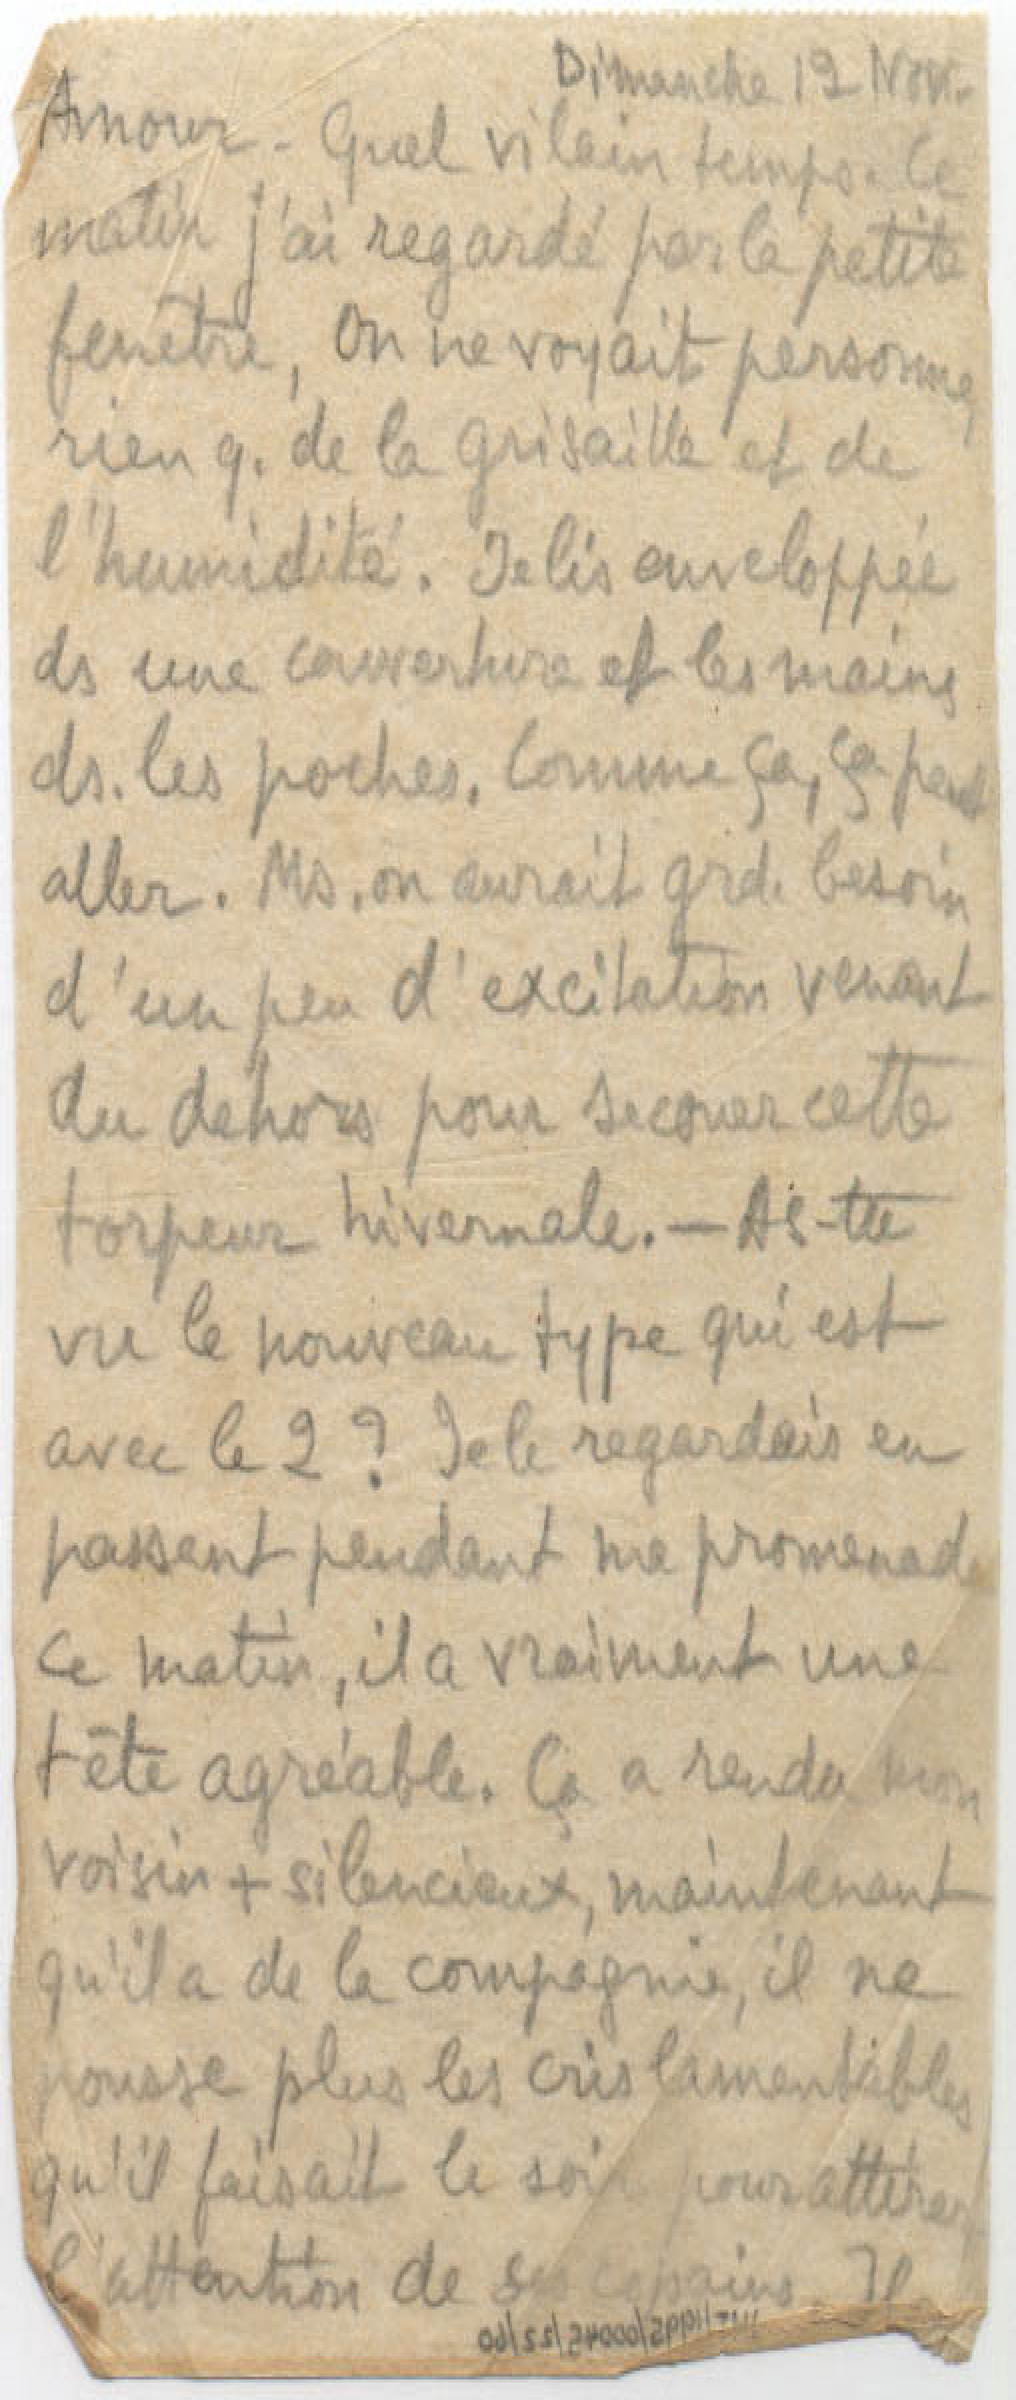 Dimanche 19 Nov.
Amour - Quel vilain temps. Ce
matin j'ai regardé par la petite
fenêtre, On ne voyait personne,
rien q. de la grisaille et de
l'humidité. Je lis enveloppée
ds une couverture et les mains
ds. les poches. Comme ça, ça peut
aller. Ms. on aurait grd. besoin
d'un peu d'excitation venant
du dehors pour secouer cette
torpeur hivernale. — As-tu
vu le nouveau type qui est
avec le 2 ? Je le regardais en
passant pendant ma promenade
ce matin, il a vraiment une
tête agréable. Ça a rendu mon
voisin + silencieux, maintenant
qu'il a de la compagnie, il ne
pousse plus les cris lamentables
qu'il faisait le soir pour attirer
l'attention de ses copains. Il